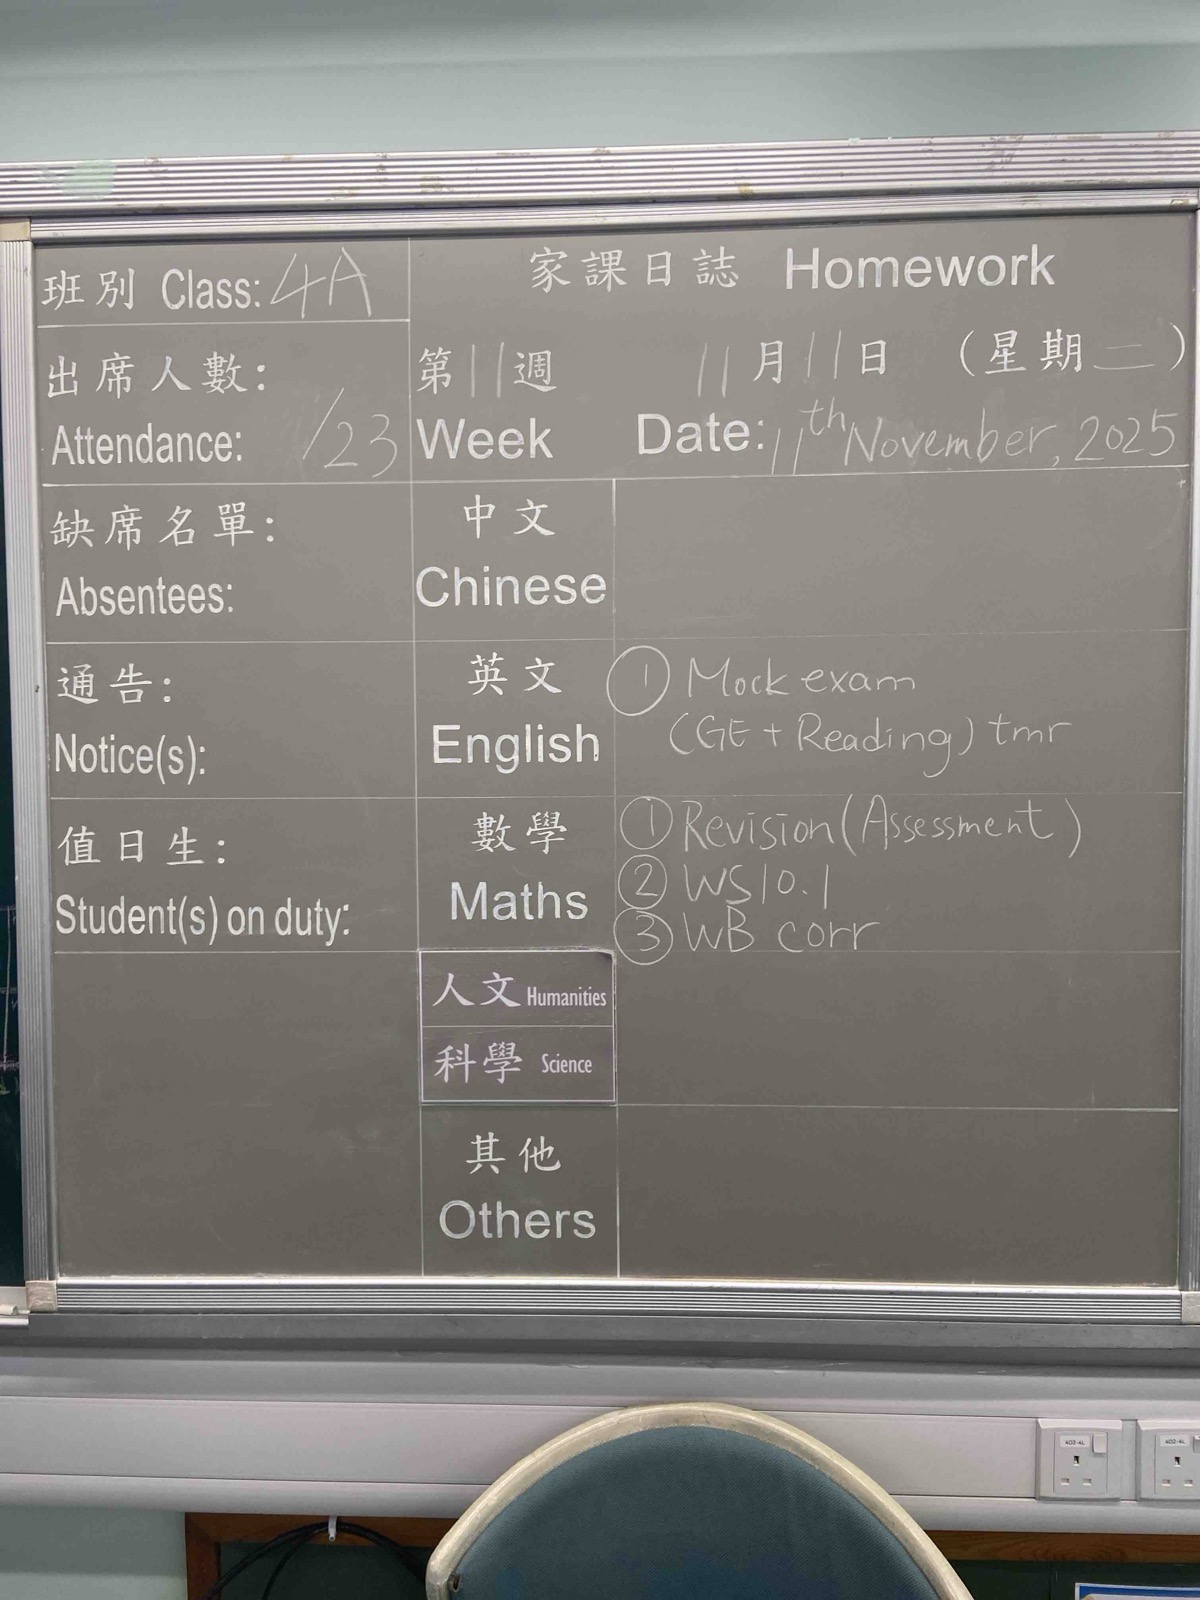 班別 Class: 4A
家課日誌 Homework
出席人數:
Attendance: /23
第11週
Week
11月11日 (星期二)
Date: 11th November, 2025
缺席名單:
Absentees:
中文
Chinese
通告:
Notice(s):
英文
English
① Mock exam
(GE + Reading) tmr
值日生:
Student(s) on duty:
數學
Maths
① Revision (Assessment)
② WS10.1
③ WB corr
人文 Humanities
科學 Science
其他
Others
402-4L
402-4L